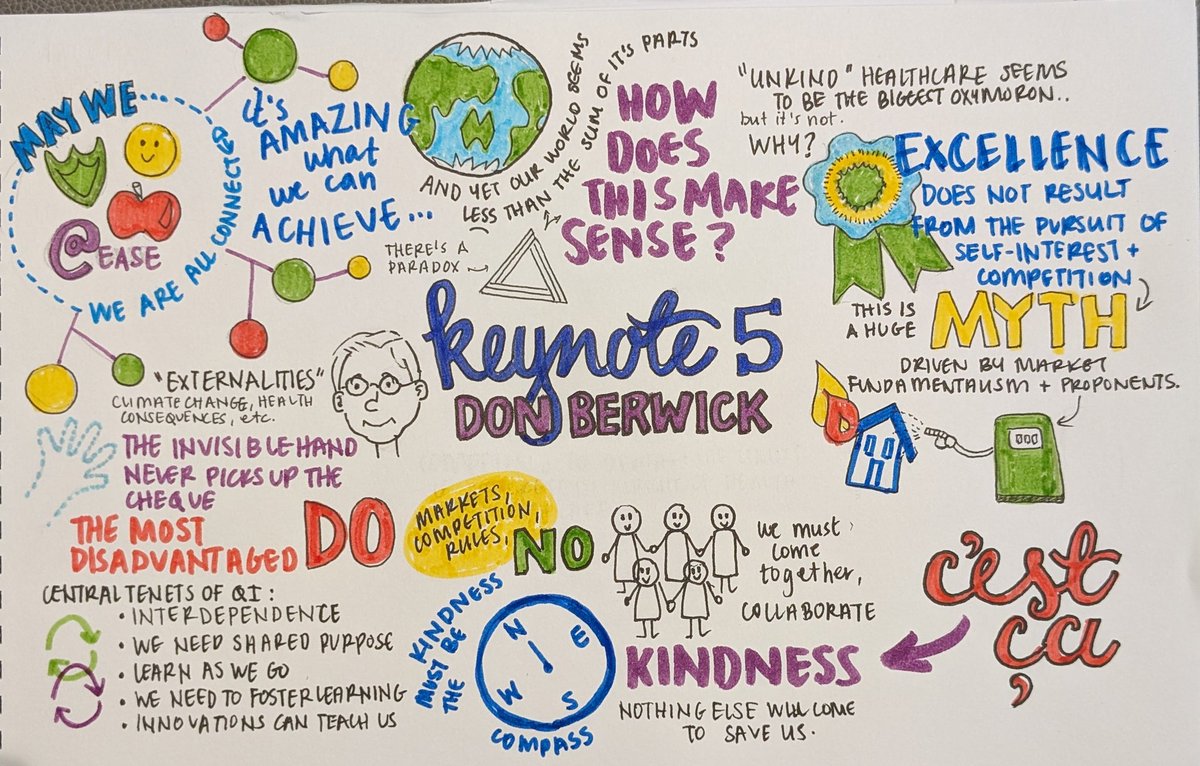 MAY WE...
@EASE
WE ARE ALL CONNECTED
it's
AMAZING
what
we can
ACHIEVE...
AND YET OUR WORLD SEEMS
LESS THAN THE SUM OF IT'S PARTS
THERE'S A
PARADOX
HOW
DOES
THIS MAKE
SENSE?
"UNKIND" HEALTHCARE SEEMS
TO BE THE BIGGEST OXYMORON..
but it's not.
WHY?
EXCELLENCE
DOES NOT RESULT
FROM THE PURSUIT OF
SELF-INTEREST +
COMPETITION
THIS IS
A HUGE
MYTH
DRIVEN BY MARKET
FUNDAMENTALISM + PROPONENTS.
keynote 5
DON BERWICK
"EXTERNALITIES"
CLIMATE CHANGE, HEALTH
CONSEQUENCES, etc.
THE INVISIBLE HAND
NEVER PICKS UP THE
CHEQUE
THE MOST
DISADVANTAGED
DO
MARKETS,
COMPETITION,
RULES,
NO
we must
come
together,
COLLABORATE
CENTRAL TENETS OF QI:
• INTERDEPENDENCE
• WE NEED SHARED PURPOSE
• LEARN AS WE GO
• WE NEED TO FOSTER LEARNING
• INNOVATIONS CAN TEACH US
KINDNESS
MUST BE
THE
N
E
S
W
COMPASS
KINDNESS
NOTHING ELSE WILL COME
TO SAVE US.
c'est
ça